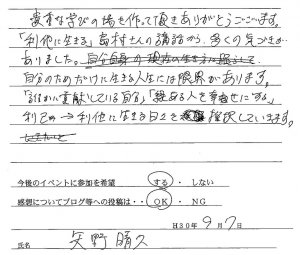 貴重な学びの場を作って頂きありがとうございます。
「利他に生きる」島村さんの講話から、多くの気づきが
ありました。自分自身の現在の生き方に照らして
自分のためだけに生きる人生には限界があります。
「誰かに貢献している自分」「縁ある人を幸せにする」
利己の→利他に生きる日々を選択していきます。
今後のイベントに参加を希望 する ・ しない
感想についてブログ等への投稿は・・ OK ・ NG
H30年 9月 7日
氏名 矢野晴久